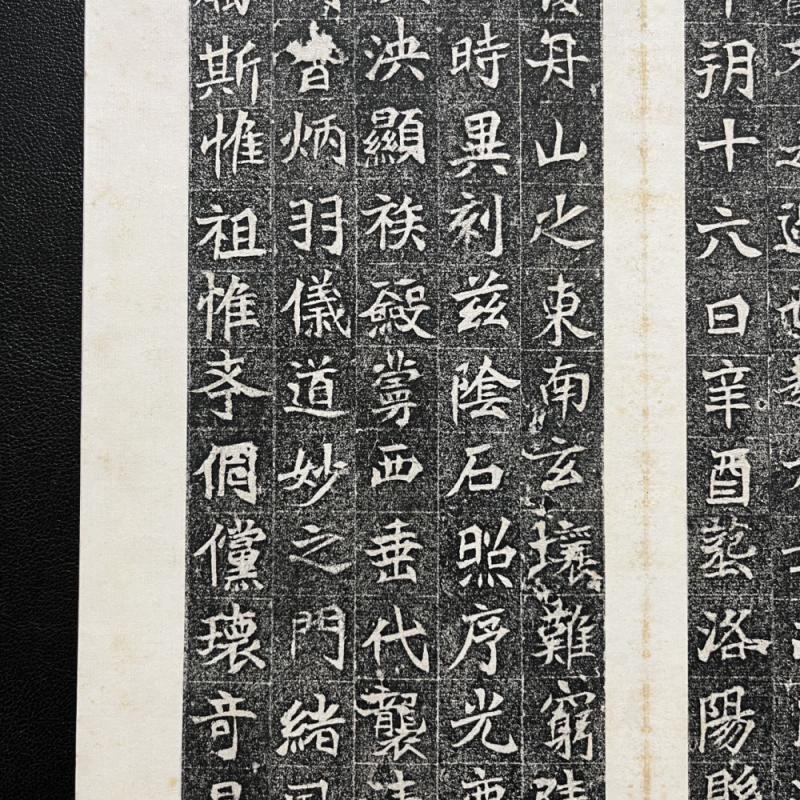 朔十六日辛酉葬洛陽縣
舟山之東南玄壤難窮陵
時異刻茲陰石照序光
泱顯族掌西垂代襲
昔炳羽儀道妙之門緒風
斯惟祖惟考倜儻瓌奇